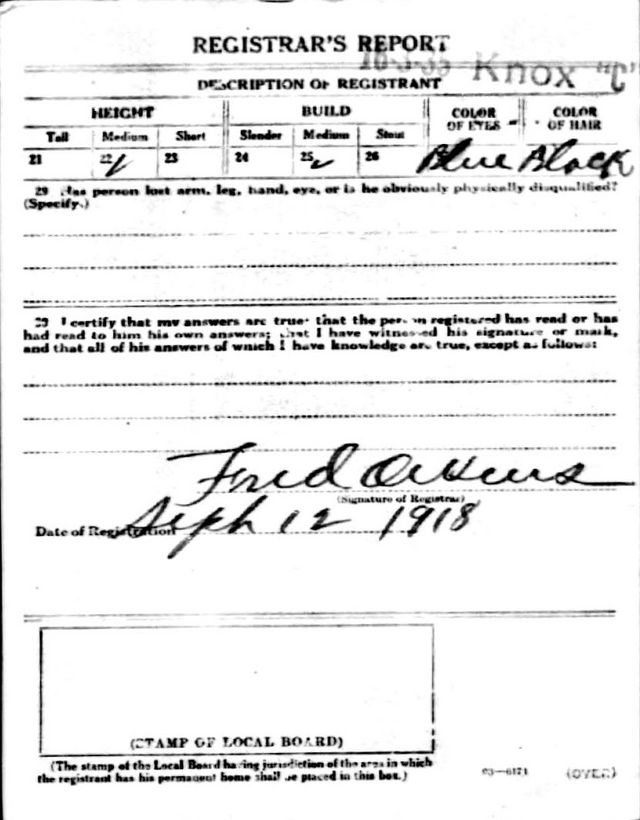 REGISTRAR'S REPORT
Knox "C"
DESCRIPTION OF REGISTRANT
HEIGHT BUILD COLOR OF EYES COLOR OF HAIR
Tall Medium Short Slender Medium Stout
21 22 ✓ 23 24 25 ✓ 26 Blue Black
29 Has person lost arm, leg, hand, eye, or is he obviously physically disqualified?
(Specify.)
I certify that my answers are true; that the person registered has read or has
had read to him his own answers; that I have witnessed his signature or mark,
and that all of his answers of which I have knowledge are true, except as follows:
Fred
(Signature of Registrar)
Date of Registration Sept 12 1918
(STAMP OF LOCAL BOARD)
(The stamp of the Local Board having jurisdiction of the area in which
the registrant has his permanent home shall be placed in this box.)
03—6171 (OVER)